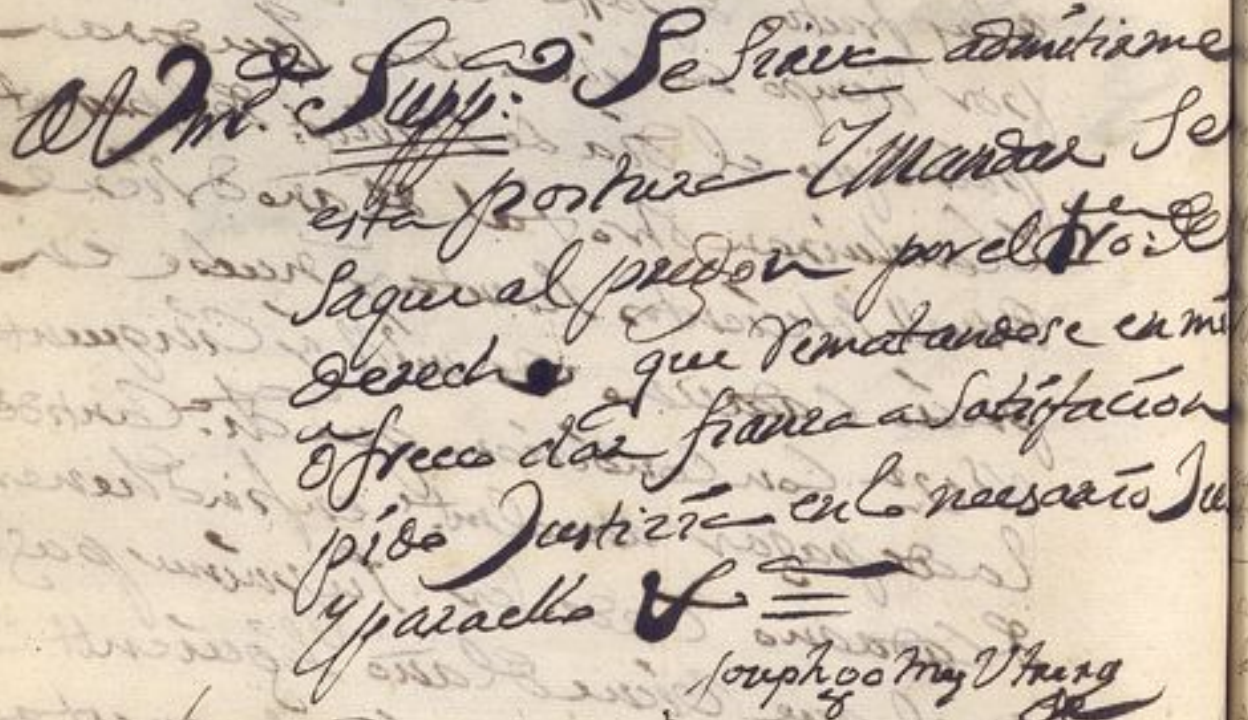 A Vmd. Supp.co Se sirva admitirme
esta postura Y mandar Se
Saque al pregon por el termno. de
derecho que rematandose en mi
ofreco dar fianza a Satisfacion
pido Justizia en lo nesesario Ju
y para ello Va